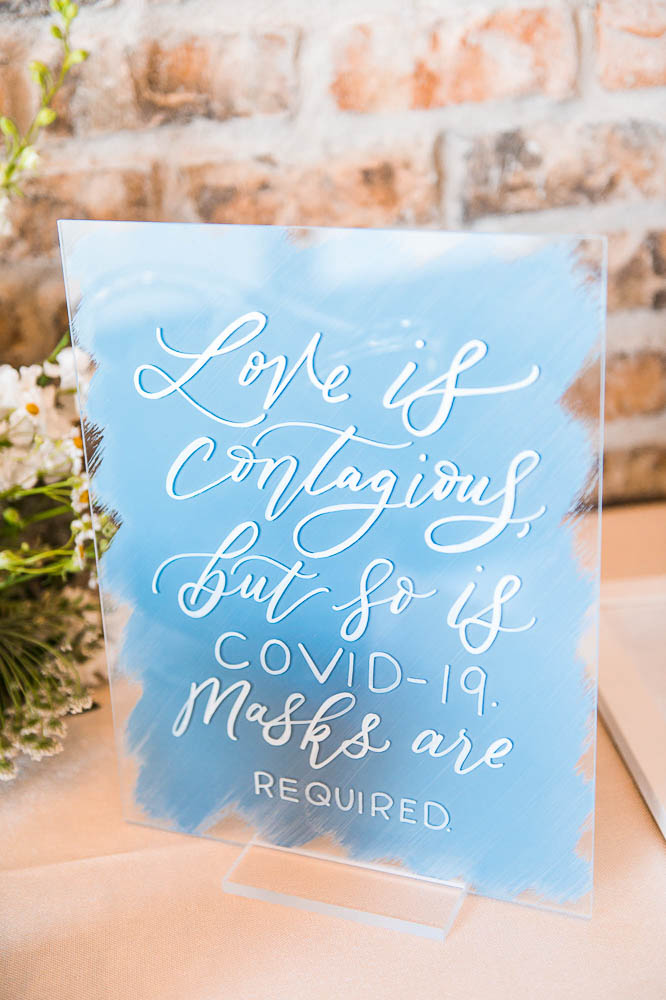 Love is
contagious,
but so is
COVID-19.
Masks are
REQUIRED.